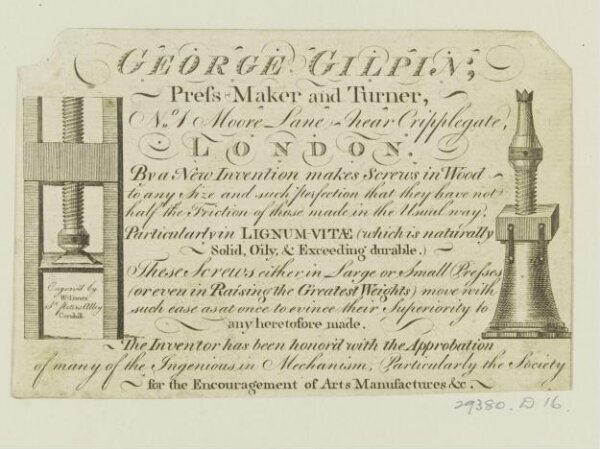 GEORGE GILPIN;
Preſs-Maker and Turner,
No. 1 Moore Lane near Cripplegate,
LONDON.
By a New Invention makes Screws in Wood
to any Size and such perfection that they have not
half the Friction of those made in the Usual way,
Particularly in LIGNUM-VITÆ (which is naturally
Solid, Oily, & Exceeding durable.)
These Screws either in Large or Small Preſses
(or even in Raising the Greatest Weights) move with
such ease as at once to evince their Superiority to
any heretofore made.
The Inventor has been honor'd with the Approbation
of many of the Ingenious in Mechanism, Particularly the Society
for the Encouragement of Arts Manufactures &c.
Engrav'd by
St. Peters Alley
Cornhill
29380. D 16.